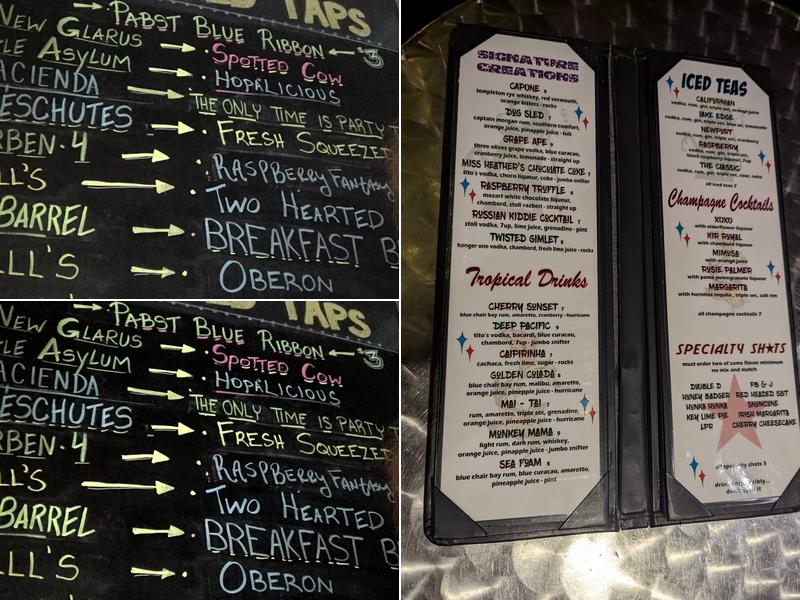 TAPS
PABST BLUE RIBBON $3
NEW GLARUS SPOTTED COW
LE ASYLUM HOPALICIOUS
ACIENDA THE ONLY TIME IS PARTY T
ESCHUTES FRESH SQUEEZED
RBEN·4 RASPBERRY FANTASY
LL'S TWO HEARTED
BARREL BREAKFAST B
LLL'S OBERON
TAPS
PABST BLUE RIBBON $3
NEW GLARUS SPOTTED COW
LE ASYLUM HOPALICIOUS
ACIENDA THE ONLY TIME IS PARTY T
ESCHUTES FRESH SQUEEZED
RBEN·4 RASPBERRY FANTASY
LL'S TWO HEARTED
BARREL BREAKFAST B
LLL'S OBERON
SIGNATURE
CREATIONS
CAPONE 8
templeton rye whiskey, red vermouth,
orange bitters - rocks
DOG SLED 7
captain morgan rum, southern comfort,
orange juice, pinapple juice - tub
GRAPE APE 9
three olives grape vodka, blue curacao,
cranberry juice, lemonade - straight up
MISS HEATHER'S CHOCOLATE COKE 7
tito's vodka, choco liqueur, coke - jumbo snifter
RASPBERRY TRUFFLE 9
mozart white chocolate liqueur,
chambord, stoli razberi - straight up
RUSSIAN KIDDIE COCKTAIL 7
stoli vodka, 7up, lime juice, grenadine - pint
TWISTED GIMLET 8
hanger one vodka, chambord, fresh lime juice - rocks
Tropical Drinks
CHERRY SUNSET 7
blue chair bay rum, amaretto, cranberry - hurricane
DEEP PACIFIC 9
tito's vodka, bacardi, blue curacao,
chambord, 7up - jumbo snifter
CAIPIRINHA 7
cachaca, fresh lime, sugar - rocks
GOLDEN COLADA 8
blue chair bay rum, malibu, amaretto,
orange juice, pineapple juice - hurricane
MAI - TAI 7
rum, amaretto, triple sec, grenadine,
orange juice, pineapple juice - hurricane
MONKEY MAMA 9
light rum, dark rum, whiskey,
orange juice, pineapple juice - jumbo snifter
SEA FOAM 8
blue chair bay rum, blue curacao, amaretto,
pineapple juice - pint
ICED TEAS
CALIFORNIAN
vodka, rum, gin, triple sec, orange juice
LAKE EDGE
vodka, rum, gin, triple sec, blue uv, lemonade
NEWPORT
vodka, rum, gin, triple sec, cranberry
RASPBERRY
vodka, rum, gin, triple sec,
black raspberry liqueur, 7up
THE CLASSIC
vodka, rum, gin, triple sec, sour, coke
all iced teas 7
Champagne Cocktails
XOXO
with elderflower liqueur
KIR ROYAL
with chambord liqueur
MIMOSA
with orange juice
ROSIE PALMER
with pama pomegranate liqueur
MARGARITA
with hornitos tequila, triple sec, salt rim
all champagne cocktails 7
SPECIALTY SH★TS
must order two of same flavor minimum
no mix and match
DOUBLE D PB & J
HONEY BADGER RED HEADED SLUT
HONKA HONKA SNOWCONE
KEY LIME PIE IRISH MARGARITA
LPR CHERRY CHEESECAKE
all specialty shots 5
drink responsibly...